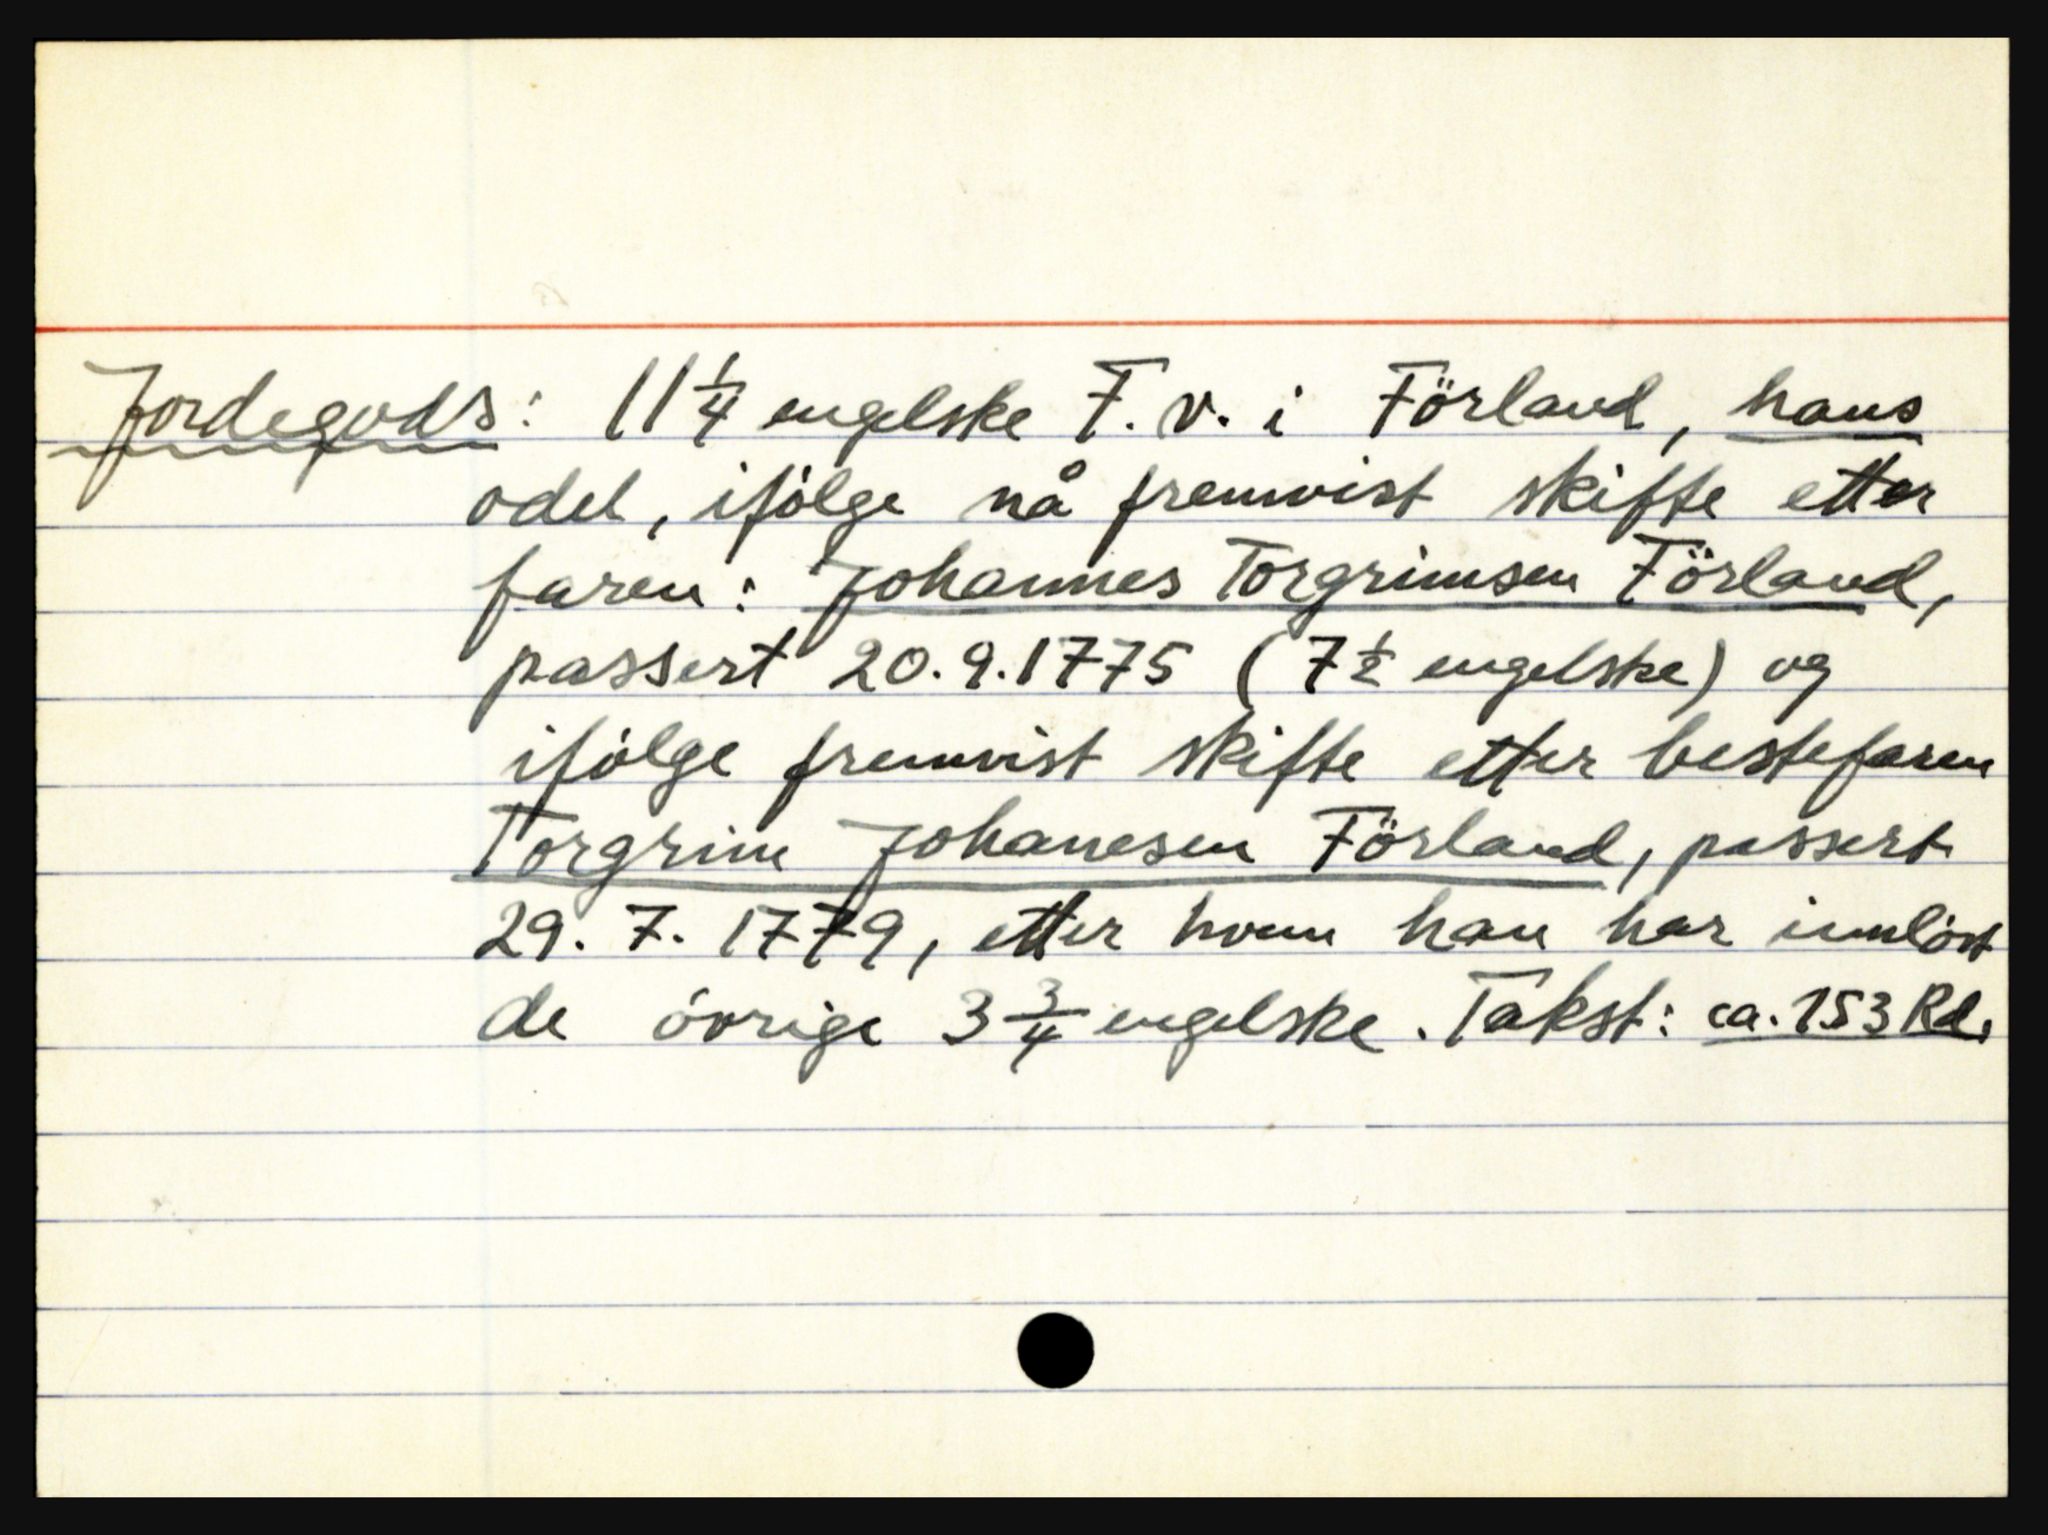 Jordegods: 11 1/4 engelske F.v. i Förland, hans
odel, ifölge nå fremvist skifte etter
faren: Johannes Torgrimsen Förland,
passert 20.9.1775 (7 1/2 engelske) og
ifölge fremvist skifte etter bestefaren
Torgrim Johanesen Förland, passert
29.7.1779, etter hvem han har innløst
de övrige 3 3/4 engelske. Takst: ca. 153 Rd.